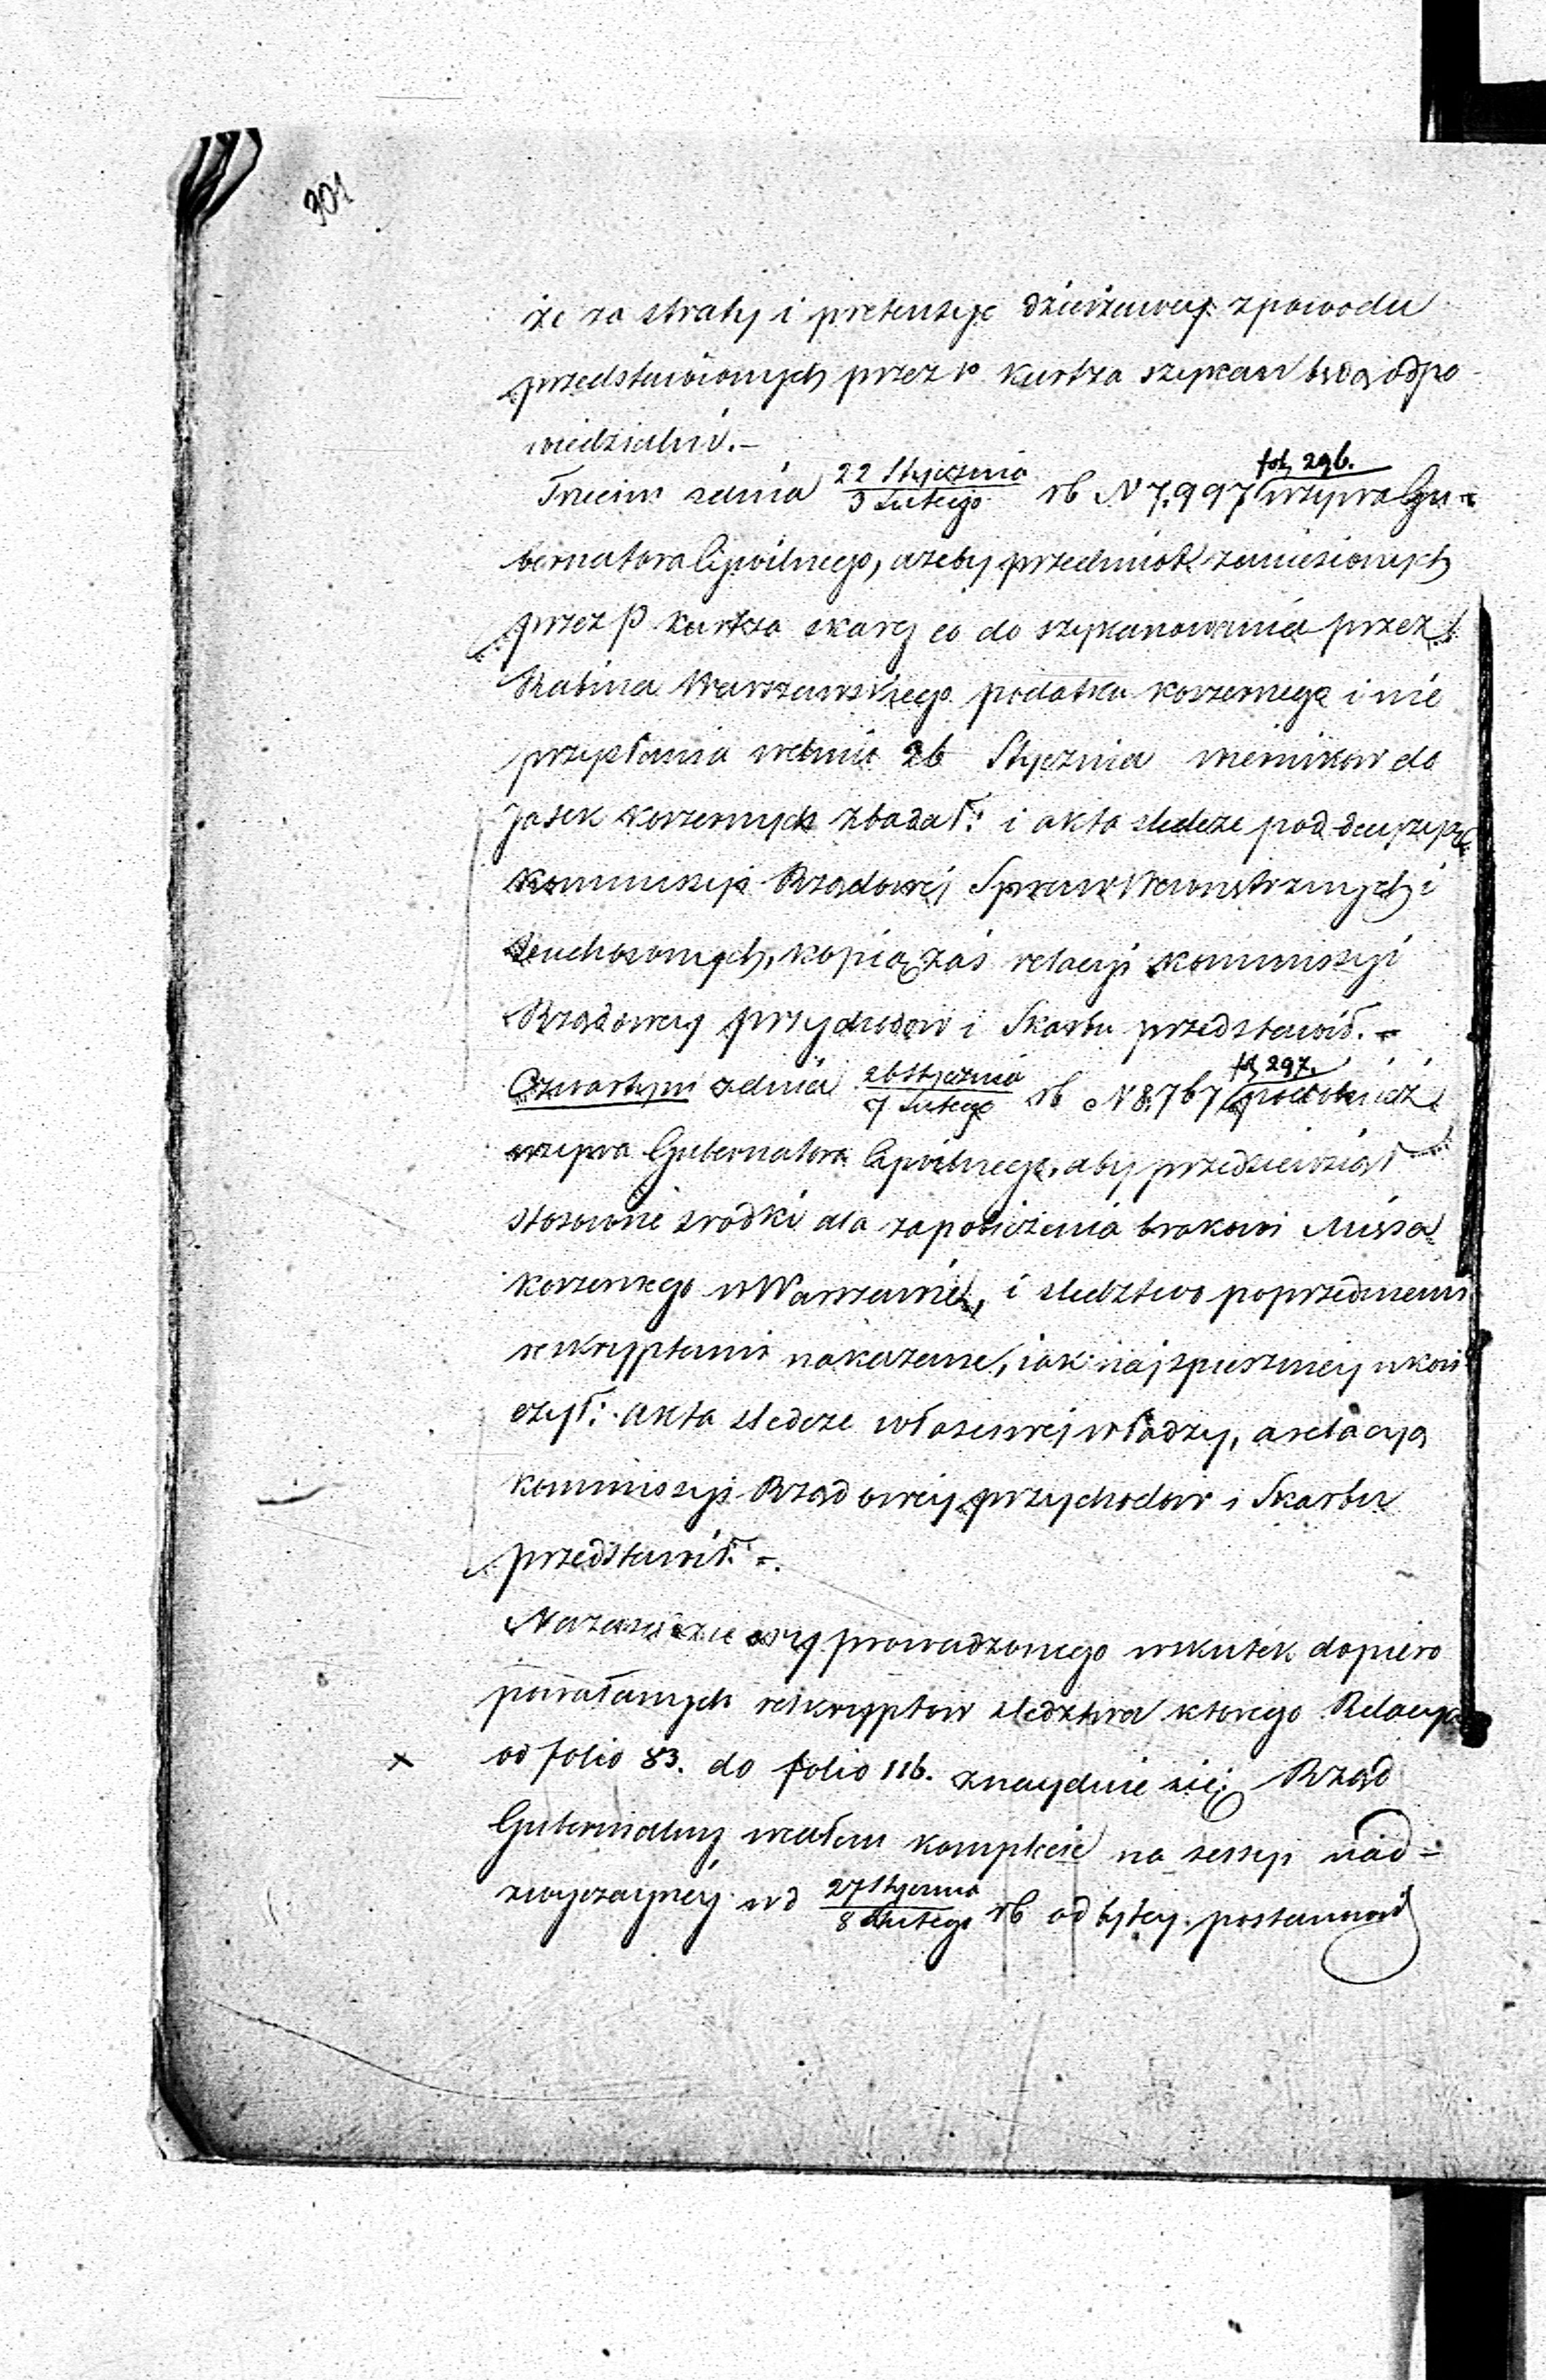 301
że za straty i pretensye dzierżawcy z powodu
przedstawionych przez P. Kurtza szykan będą odpo-
wiedzialni. –
Trzecim z dnia 22 Stycznia / 3 Lutego rb N 7,997 fol. 296. wzywa Gu-
bernatora Cywilnego, ażeby przedmiot zaniesionych
przez P Kurtza skarg co do szykanowania przez
Rabina Warszawskiego podatku koszernego i nie
przysłania w dniu 26 Stycznia rzezników do
Jatek koszernych zbadał: i akta sledcze pod decyzyę
Kommissyi Rządowej Spraw Wewnętrznych i
Duchownych, kopią zaś relacyi Kommissyi
Rządowey Przychodow i Skarbu przedstawił. –
Czwartym z dnia 26 Stycznia / 7 Lutego rb N 8,767 fol. 297. podobnież
wzywa Gubernatora Cywilnego, aby przedsiewziął
stosowne srodki dla zapobieżenia brakowi Mięsa
koszernego w Warszawie, i sledztwo poprzedniemi
reskryptami nakazane, iak najspieszniey ukoń
czył: akta sledcze własciwej władzy, a relacyą
Kommissyi Rządowey Przychodow i Skarbu
przedstawił. –
Na zasadzie wyprowadzonego wskutek dopiero
powołanych reskryptow sledztwa ktorego Relacya
× od folio 83. do folio 116. znayduie się; Rząd
Gubernialny w całem komplecie na sessyi nad=
zwyczayney w d 27 Stycznia / 8 Lutego rb odbytey postanowił